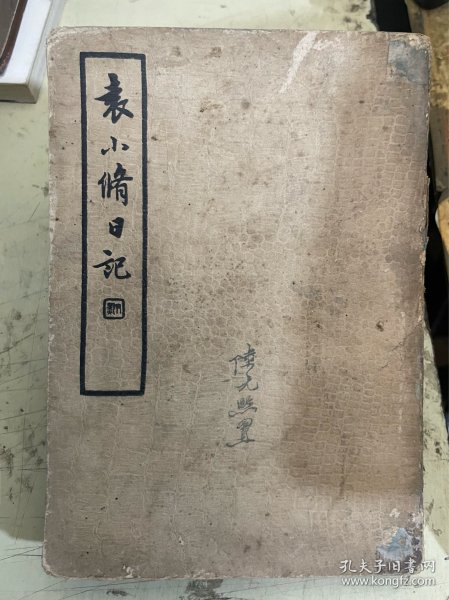 袁小脩日記
陸元熙置
孔夫子旧书网
www.kongfz.com